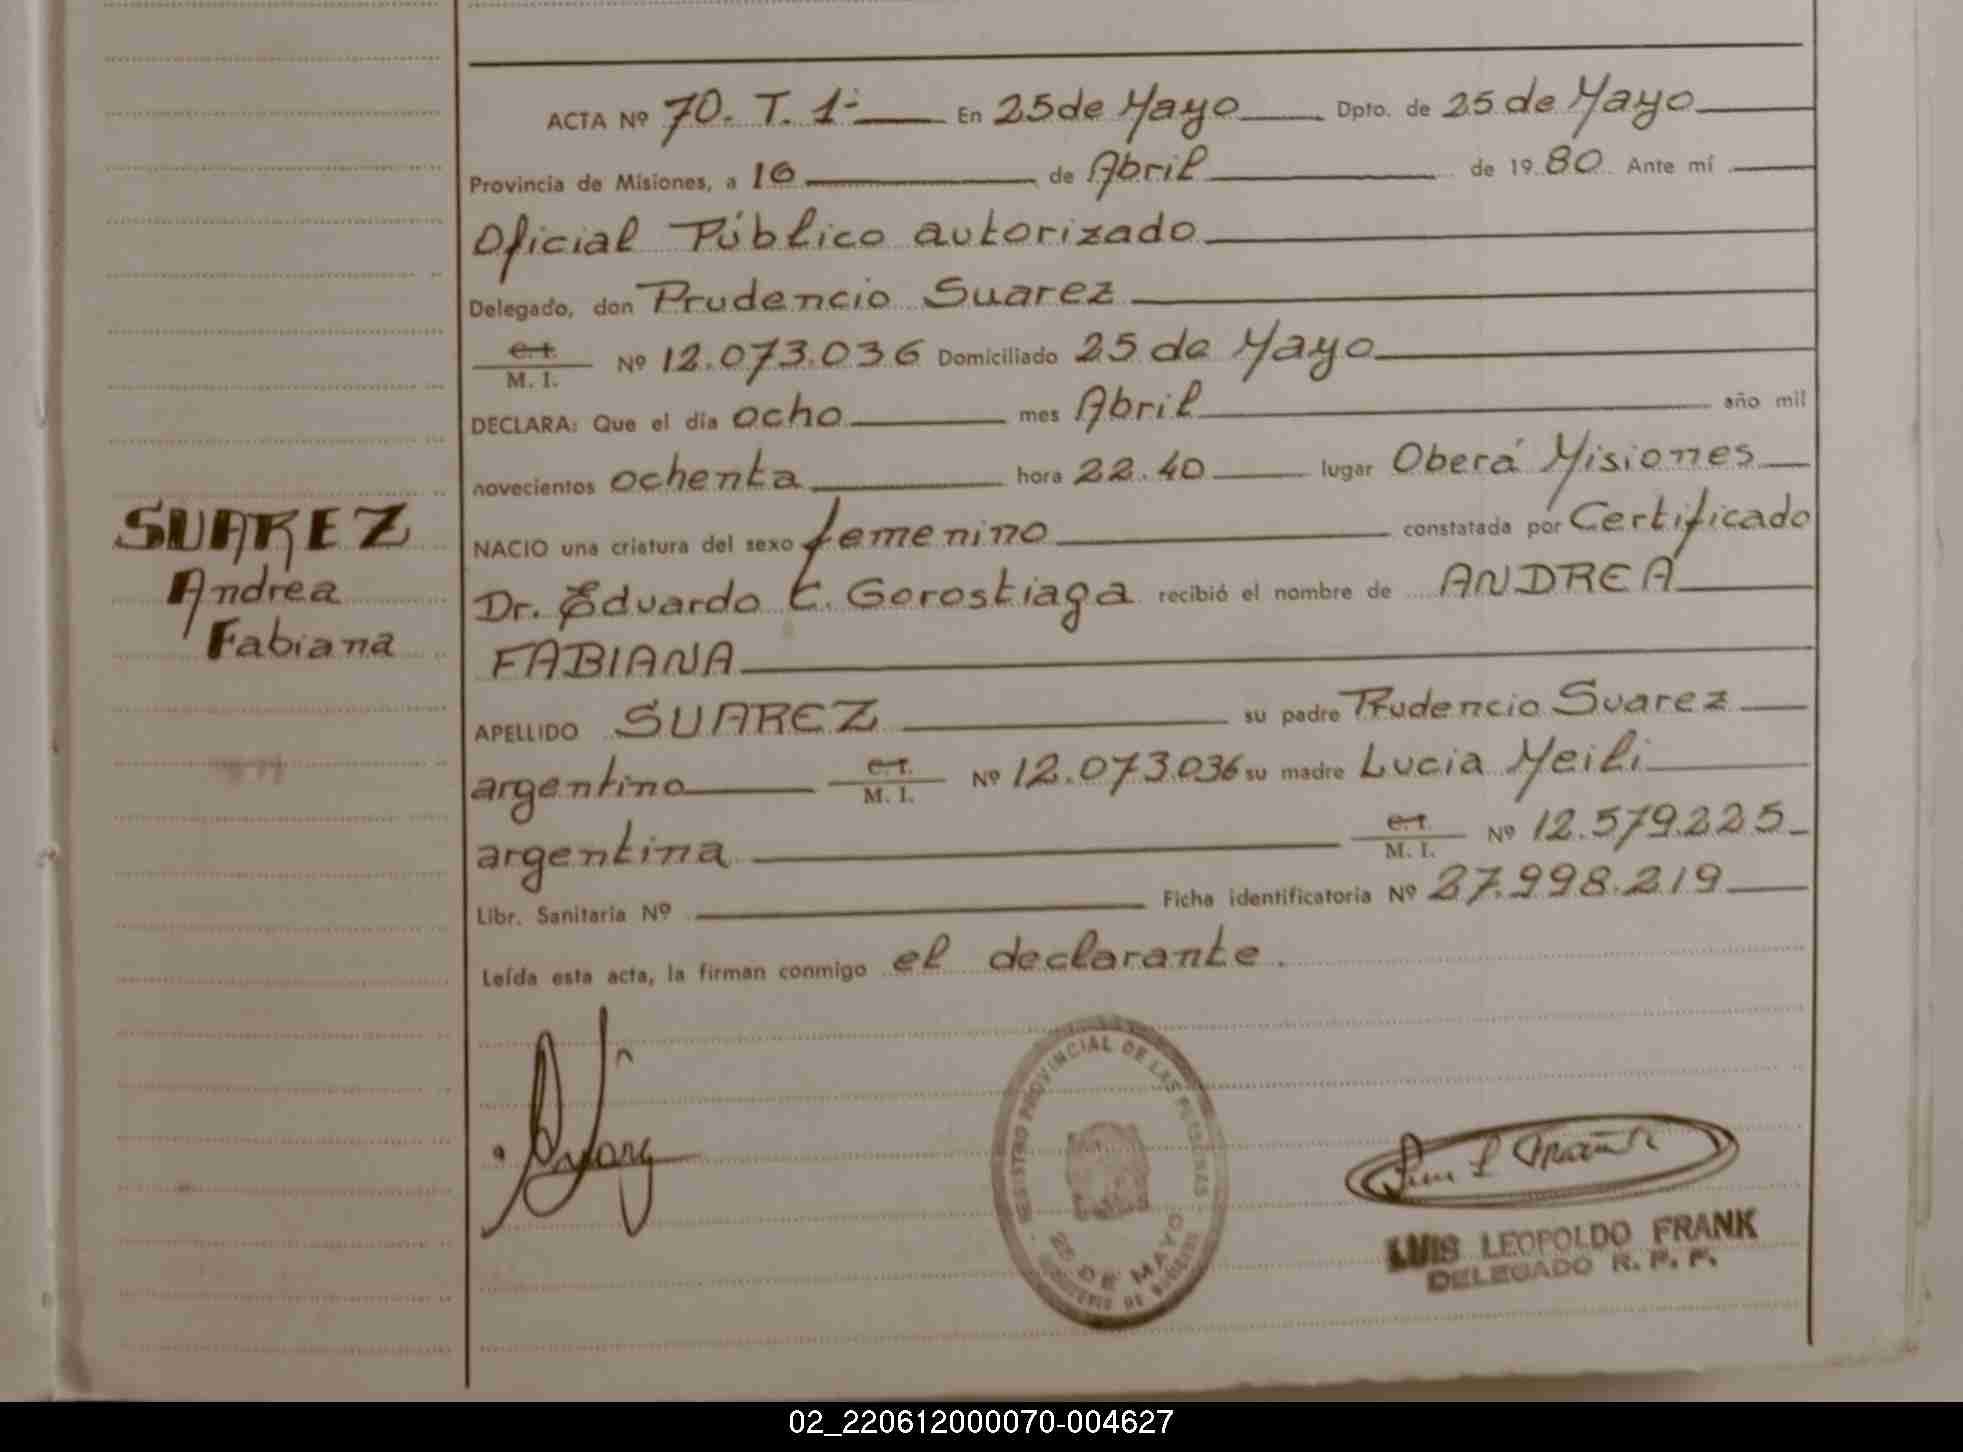 ACTA Nº 70. T. 1- En 25 de Mayo Dpto. de 25 de Mayo
Provincia de Misiones, a 10 de Abril de 19 80 Ante mí
Oficial Público autorizado
Delegado, don Prudencio Suarez
C.I. Nº 12.073.036 Domiciliado 25 de Mayo
M. I.
DECLARA: Que el día ocho mes Abril año mil
novecientos ochenta hora 22.40 lugar Oberá Misiones
SUAREZ
NACIO una criatura del sexo femenino constatada por Certificado
Andrea
Dr. Eduardo C. Gorostiaga recibió el nombre de ANDREA
Fabiana
FABIANA
APELLIDO SUAREZ su padre Prudencio Suarez
argentino C.I. Nº 12.073.036 su madre Lucia Meili
M. I.
argentina C.I. Nº 12.579.225
M. I.
Libr. Sanitaria Nº Ficha identificatoria Nº 27.998.219
Leída esta acta, la firman conmigo el declarante.
REGISTRO PROVINCIAL DE LAS PERSONAS
25 DE MAYO
LUIS LEOPOLDO FRANK
DELEGADO R. P. P.
02_220612000070-004627